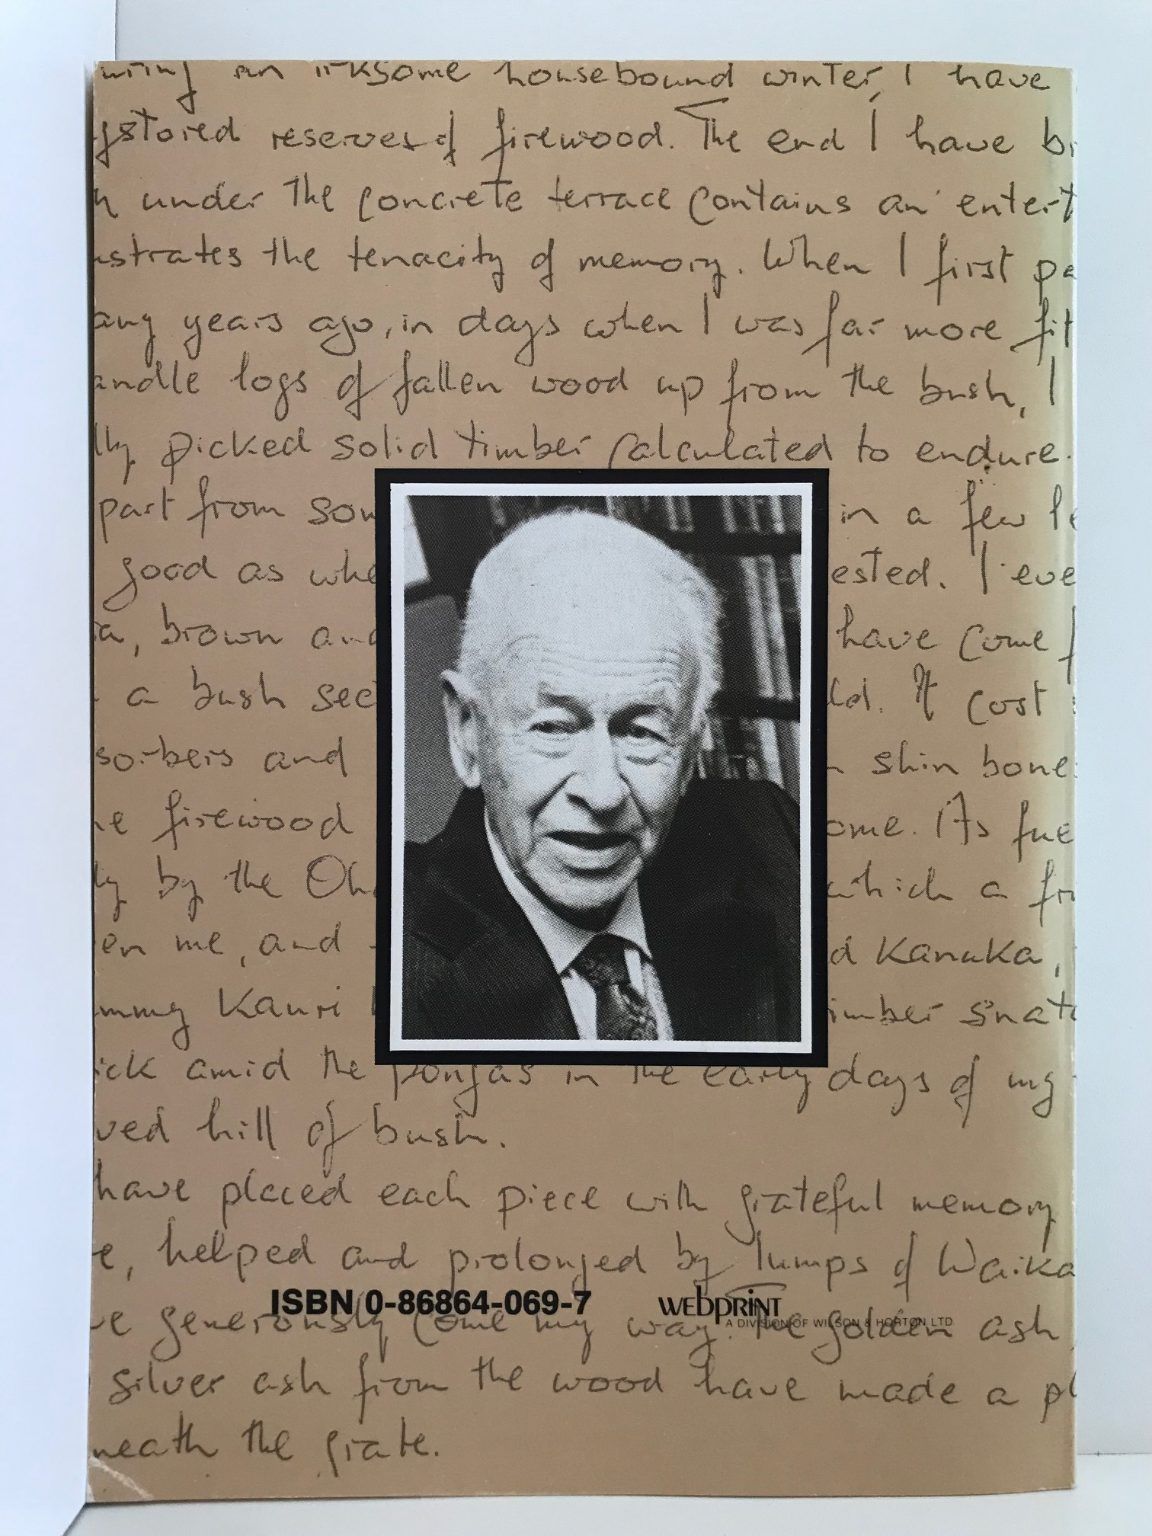 an irksome housebound winter, I have
stored reserves of firewood. The end I have br
h under the concrete terrace contains an entert
strates the tenacity of memory. When I first pa
any years ago, in days when I was far more fit
andle logs of fallen wood up from the bush, I
lly picked solid timber calculated to endure.
part from som in a few le
good as whe ested. I eve
a, brown and have come f
a bush sec ld. It cost
sorbers and n shin bone
he firewood ome. As fue
ly by the Oh which a fri
en me, and d Kanuka,
mmy Kauri imber snatc
ick amid the pongas in the early days of my
ved hill of bush.
have placed each piece with grateful memory
e, helped and prolonged by lumps of Waika
ISBN 0-86864-069-7 WEBPRINT
A DIVISION OF WILSON & HORTON LTD
ve generously come my way. The golden ash
silver ash from the wood have made a pl
neath the grate.